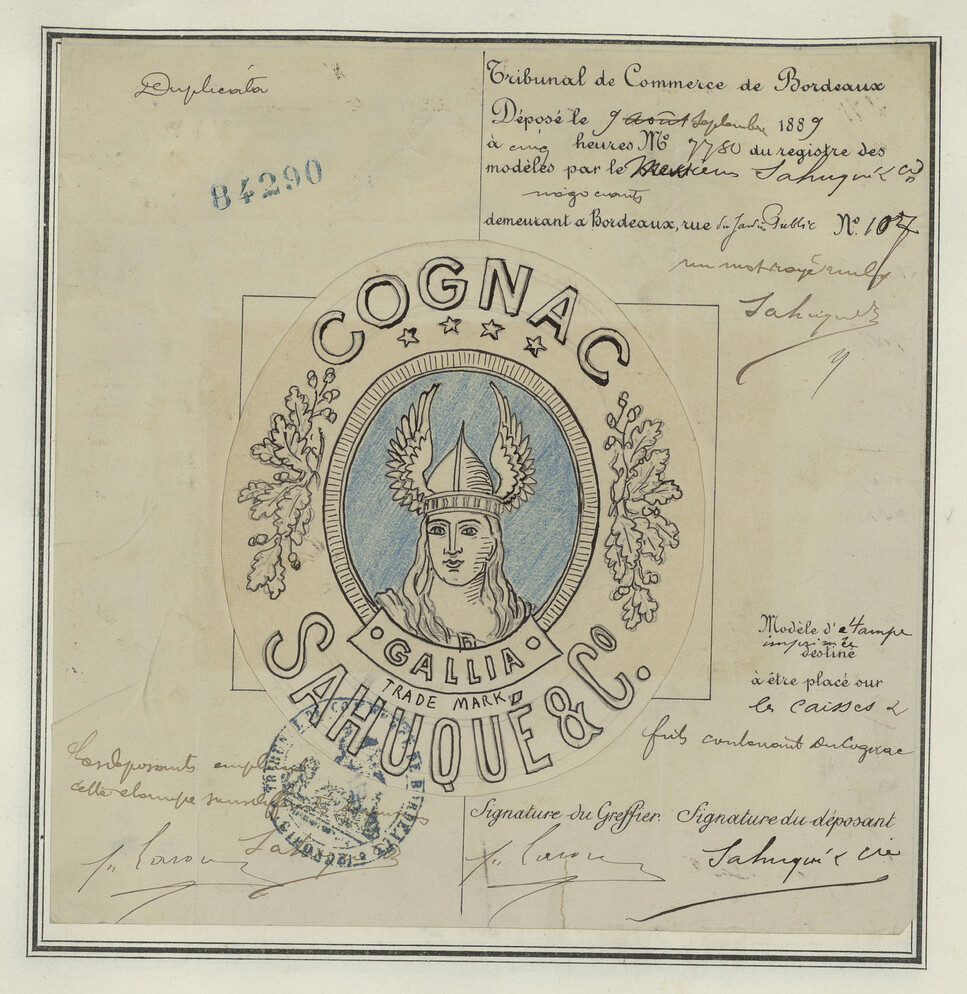 Duplicata
84290
Tribunal de Commerce de Bordeaux
Déposé le 9 août Septembre 1889
à cinq heures No 7780 du registre des
modèles par le Messieurs Sahuqué & Cie
négociants
demeurant a Bordeaux, rue du Jardin Public No. 107
un mot rayé nul
Sahuqué
COGNAC
GALLIA
TRADE MARK
SAHUQUÉ & Co.
Modèle d'etampe
imprimée
destiné
à être placé sur
les caisses &
fûts contenant du Cognac
Les déposants
cette étampe
Signature du Greffier. Signature du déposant
Sahuqué & Cie